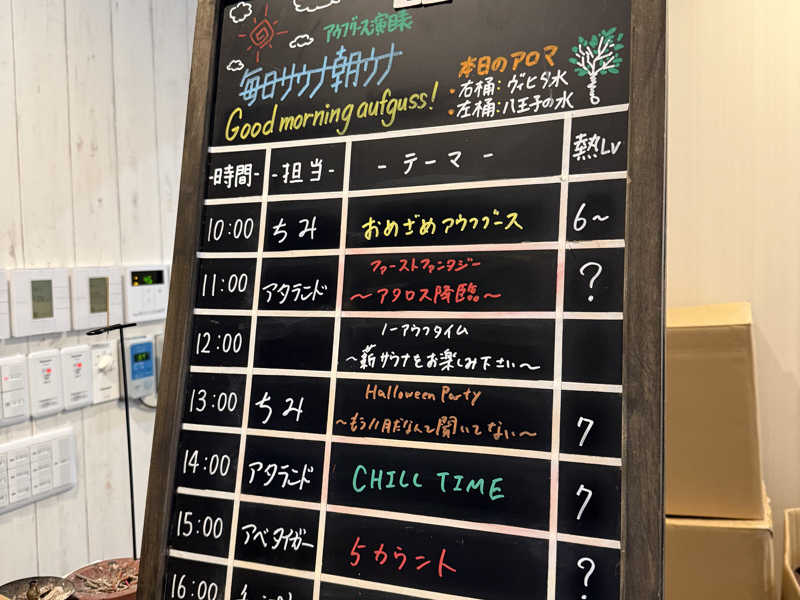 アウフグース演目表
毎日サウナ朝ウナ
Good morning aufguss!
本日のアロマ
・右桶：ヴィヒタ水
・左桶：八王子の水
-時間- -担当- -テーマ- 熱Lv
10:00 ちみ おめざめアウフグース 6~
11:00 アタランド ファーストファンタジー ?
~アタロス降臨~
12:00 ノーアウフタイム
~薪サウナをお楽しみ下さい~
13:00 ちみ Halloween Party 7
~もう11月だなんて聞いてない~
14:00 アタランド CHILL TIME 7
15:00 アベタイガー 5カウント ?
16:00